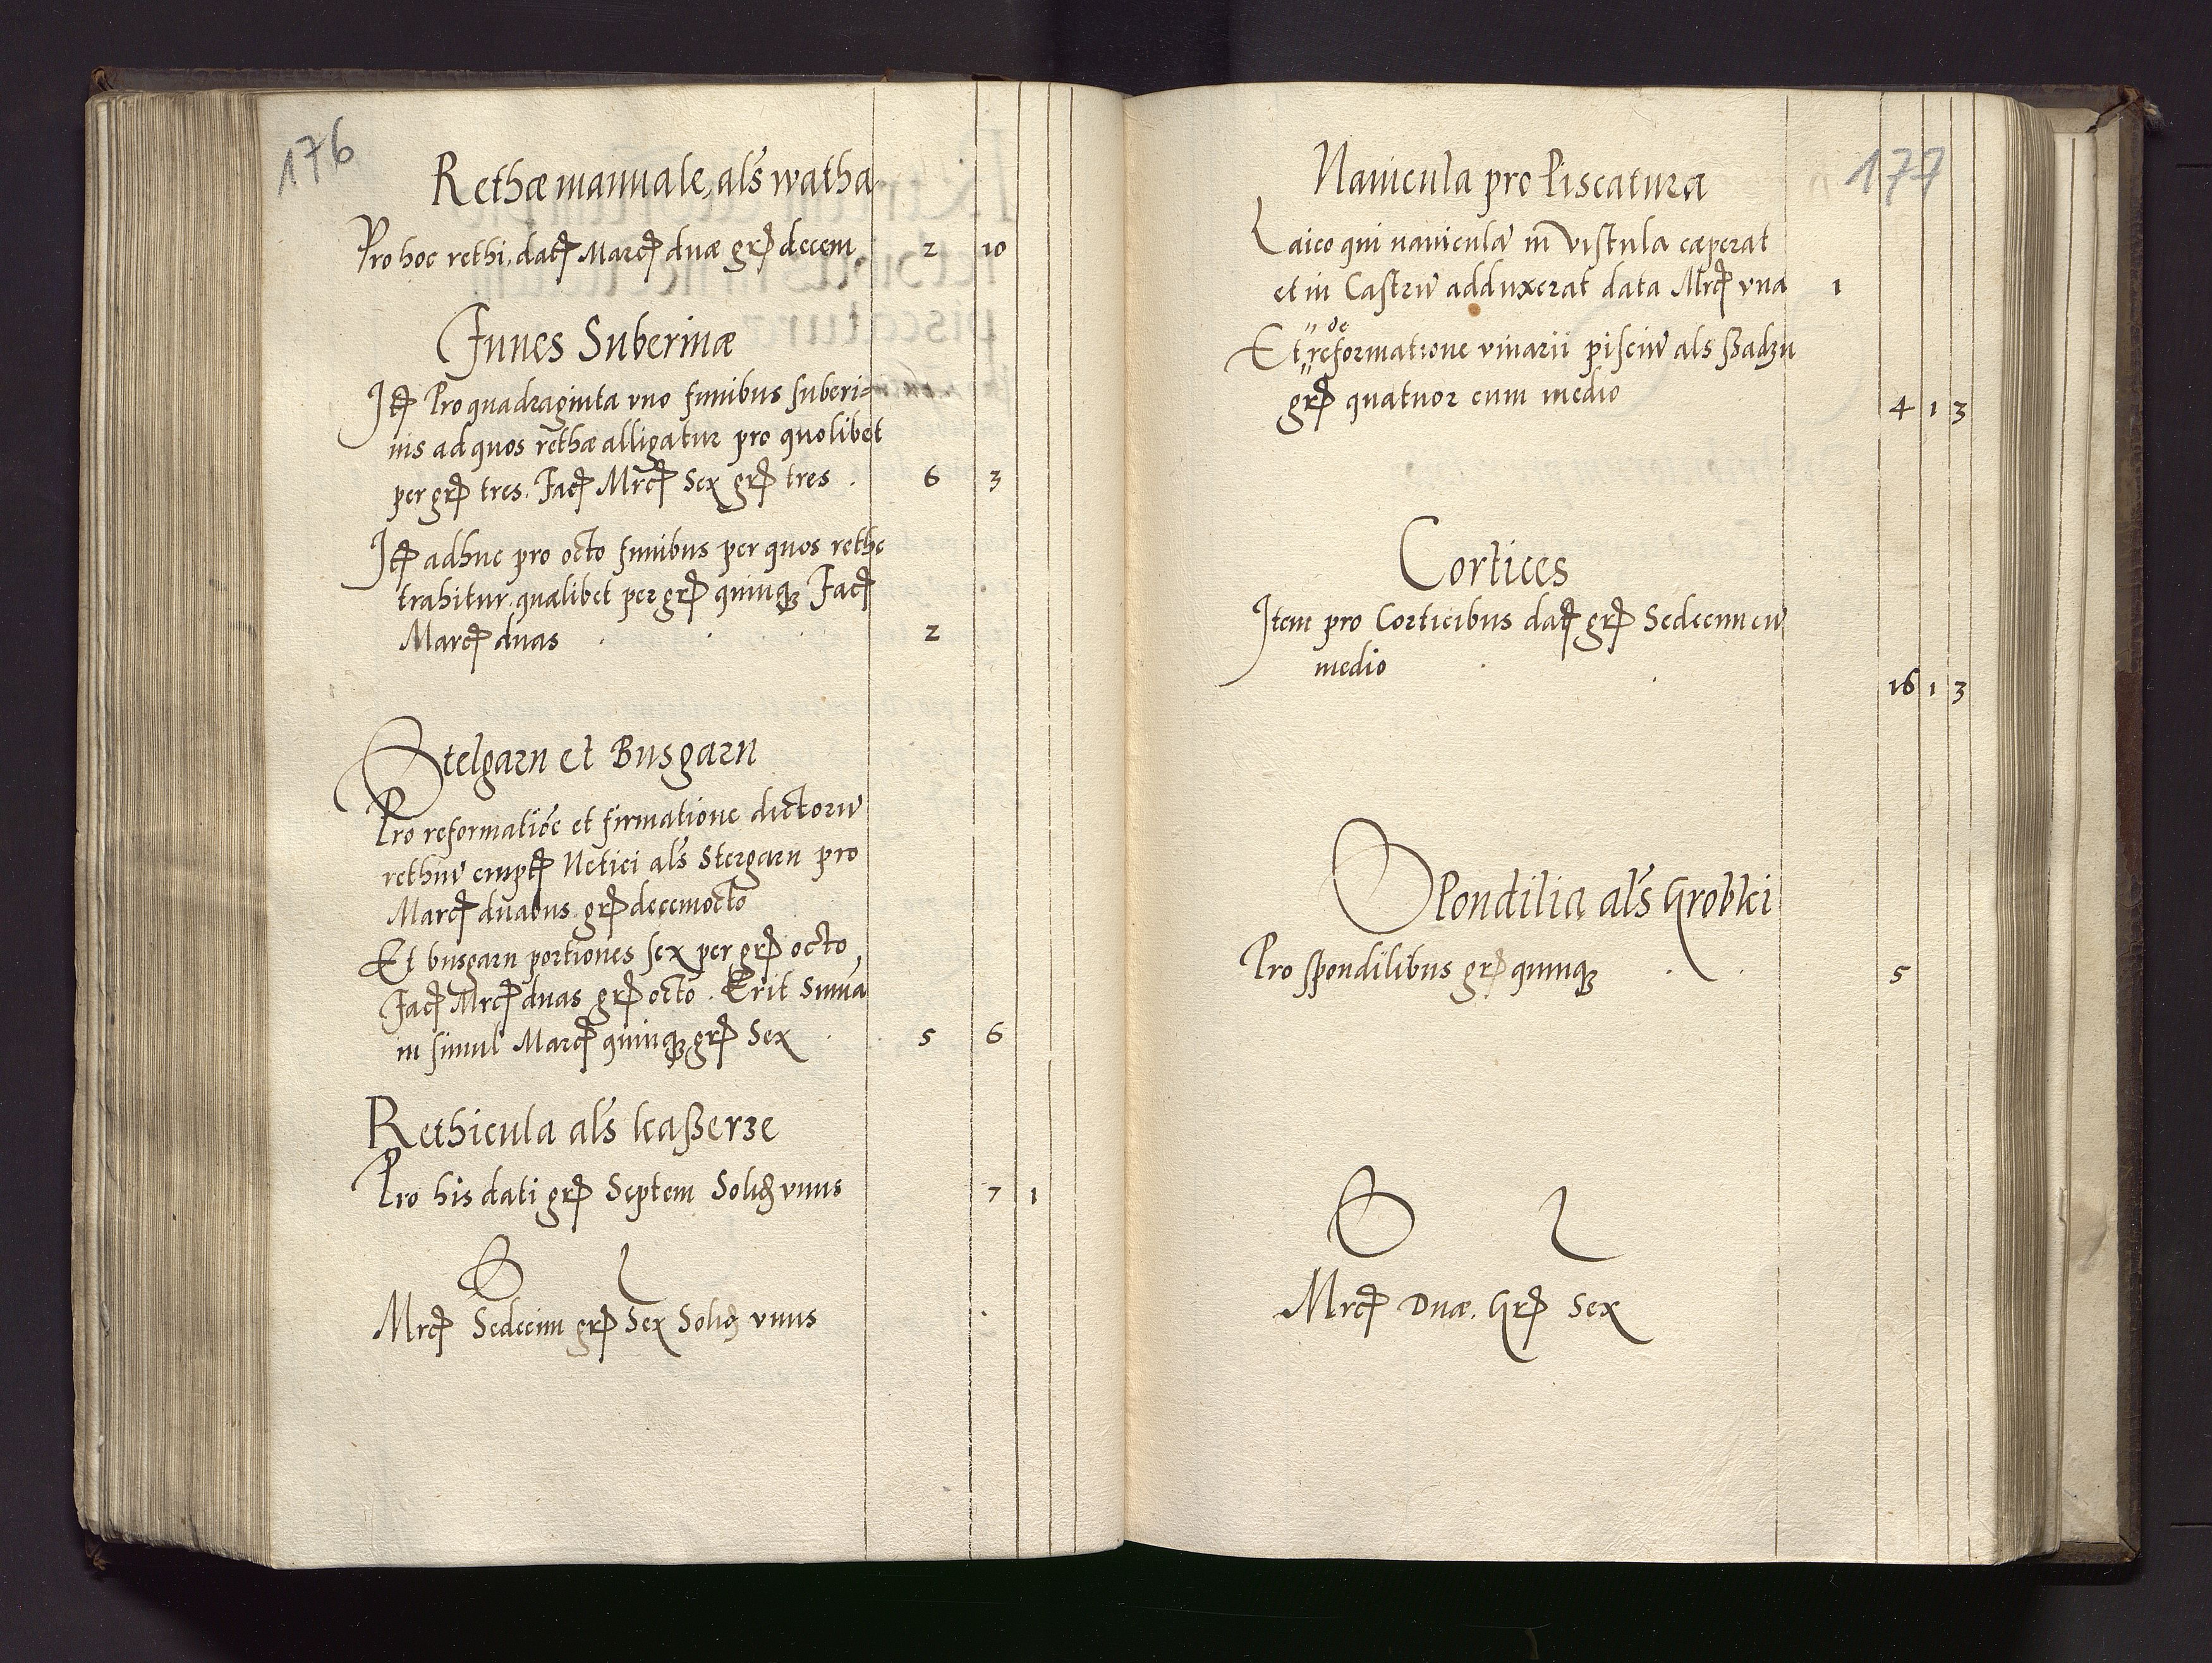 176
Rethæ manuale, als watha
Pro hoc rethi, datę Marcę duæ grę decem 2 10
Funes Suberinæ
Itę Pro quadraginta vno funibus suberi=
nis ad quos rethæ alligatur pro quolibet
per grę tres. Facę Mrcę Sex grę tres . 6 3
Itę adhuc pro octo funibus per quos rethe
trahitur. qualibet per grę quinqꝫ Facę
Marcę duas . . . 2
Stelgarn et Busgarn
Pro reformatiōe et firmatione dictorū
rethiū emptę Netici als Stergarn pro
Marcę duabus grę decemocto
Et busgarn portiones sex per grę octo,
Facę Mrcę duas grę octo. Erit Suma
in simul Marcę quinqꝫ grę Sex . 5 6
Rethicula als kaßerze
Pro his dati grę Septem Solid vnus 7 1
S l
Mrcę Sedecim grę Sex Solid vnus
177
Nauicula pro Piscatura
Laico qui nauiculā in Vistula cæperat
et in Castrū adduxerat data Mrcę vna 1
de
Et reformatione viuarii pisciū als ßadzu
grę quatuor cum medio 4 1 3
Cortices
Item pro Corticibus datę grę Sedecim cū
medio . . 16 1 3
SPondilia als Grobki
Pro spondilibus grę quinqꝫ . . 5
S l
Mrcę Duæ. Grę Sex